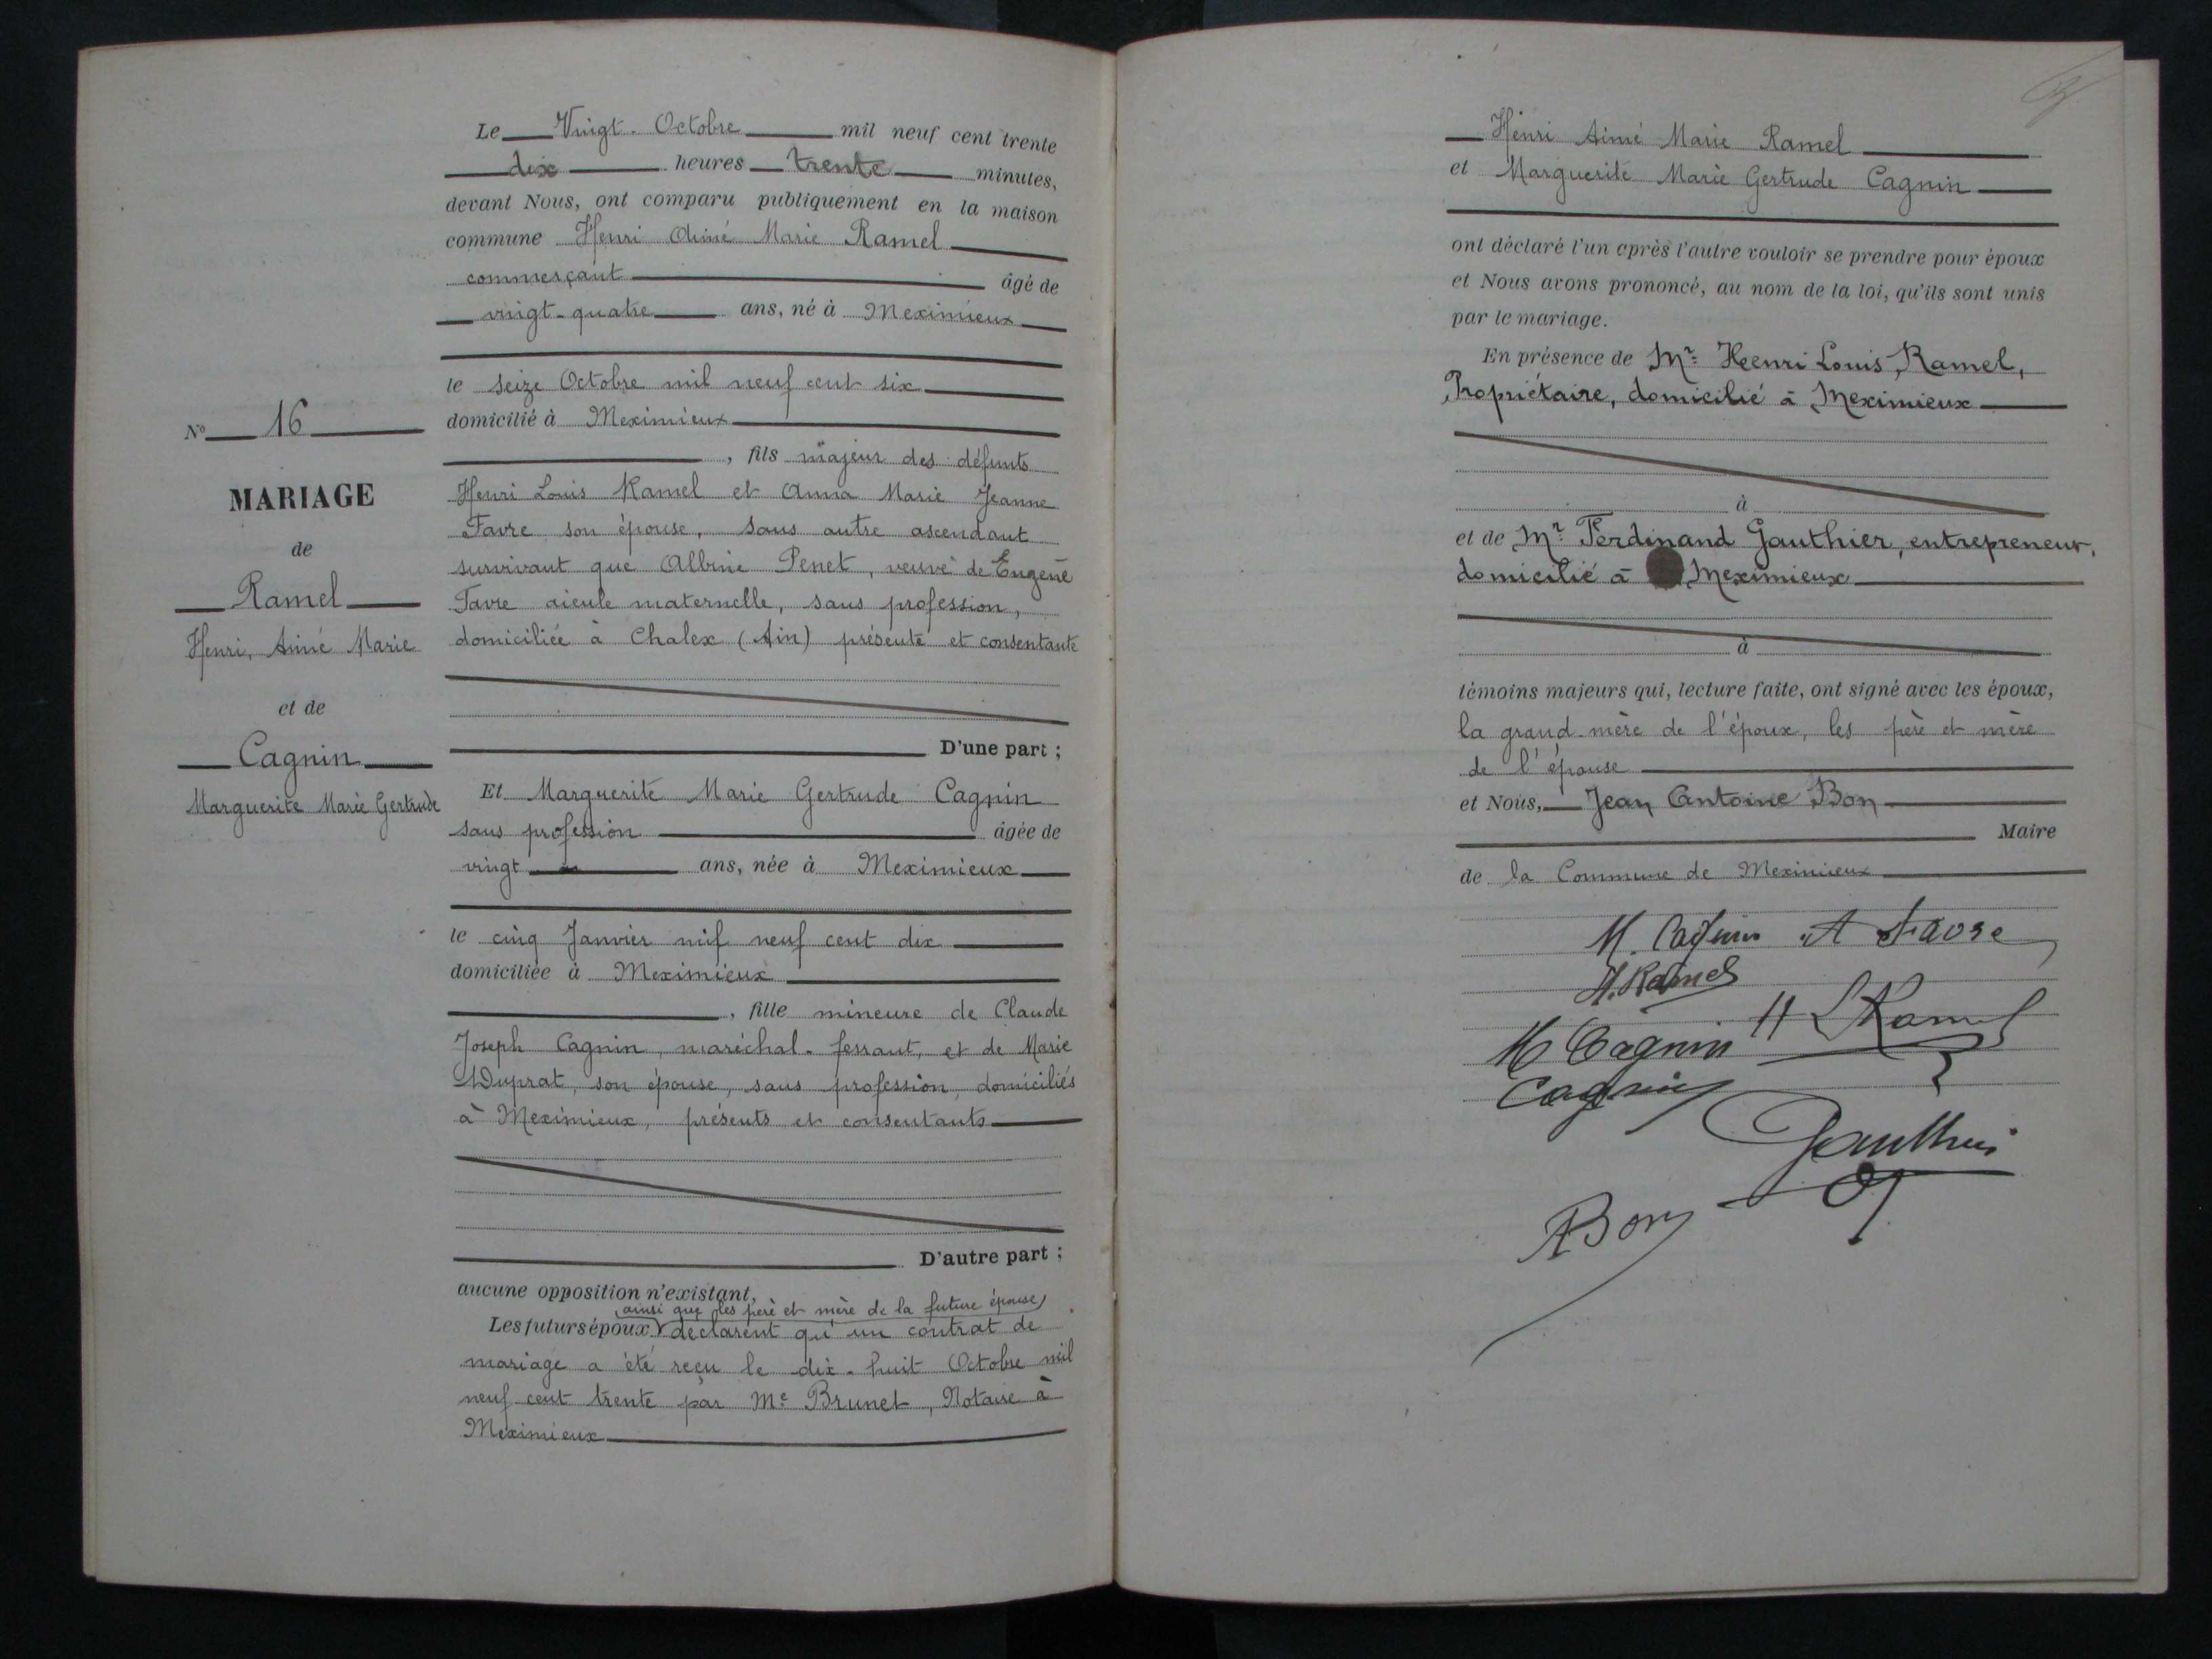 Le Vingt Octobre mil neuf cent trente
dix heures trente minutes,
devant Nous, ont comparu publiquement en la maison
commune Henri Aimé Marie Ramel
commerçant âgé de
vingt-quatre ans, né à Meximieux
le seize Octobre mil neuf cent six
domicilié à Meximieux
, fils majeur des défunts
Henri Louis Ramel et Anna Marie Jeanne
Favre son épouse, sans autre ascendant
survivant que Albine Penet, veuve de Eugène
Favre aieule maternelle, sans profession,
domiciliée à Chalex (Ain) présente et consentante
D'une part ;
Et Marguerite Marie Gertrude Cagnin
sans profession âgée de
vingt ans, née à Meximieux
le cinq Janvier mil neuf cent dix
domiciliée à Meximieux
, fille mineure de Claude
Joseph Cagnin, maréchal-ferrant, et de Marie
Duprat, son épouse, sans profession, domiciliés
à Meximieux, présents et consentants
D'autre part ;
aucune opposition n'existant,
ainsi que les père et mère de la future épouse
Les futurs époux déclarent qu'un contrat de
mariage a été reçu le dix-huit Octobre mil
neuf cent trente par Me Brunet, Notaire à
Meximieux
No 16
MARIAGE
de
Ramel
Henri, Aimé Marie
et de
Cagnin
Marguerite Marie Gertrude
Henri Aimé Marie Ramel
et Marguerite Marie Gertrude Cagnin
ont déclaré l'un après l'autre vouloir se prendre pour époux
et Nous avons prononcé, au nom de la loi, qu'ils sont unis
par le mariage.
En présence de Mr Henri Louis Ramel,
Propriétaire, domicilié à Meximieux
à
et de Mr Ferdinand Gauthier, entrepreneur,
domicilié à Meximieux
à
témoins majeurs qui, lecture faite, ont signé avec les époux,
la grand-mère de l'époux, les père et mère
de l'épouse
et Nous, Jean Antoine Bon
Maire
de la Commune de Meximieux
M. Cagnin A Favre
H. Ramel
H L Ramel
M Cagnin
Cagnin
Gauthier
A Bon